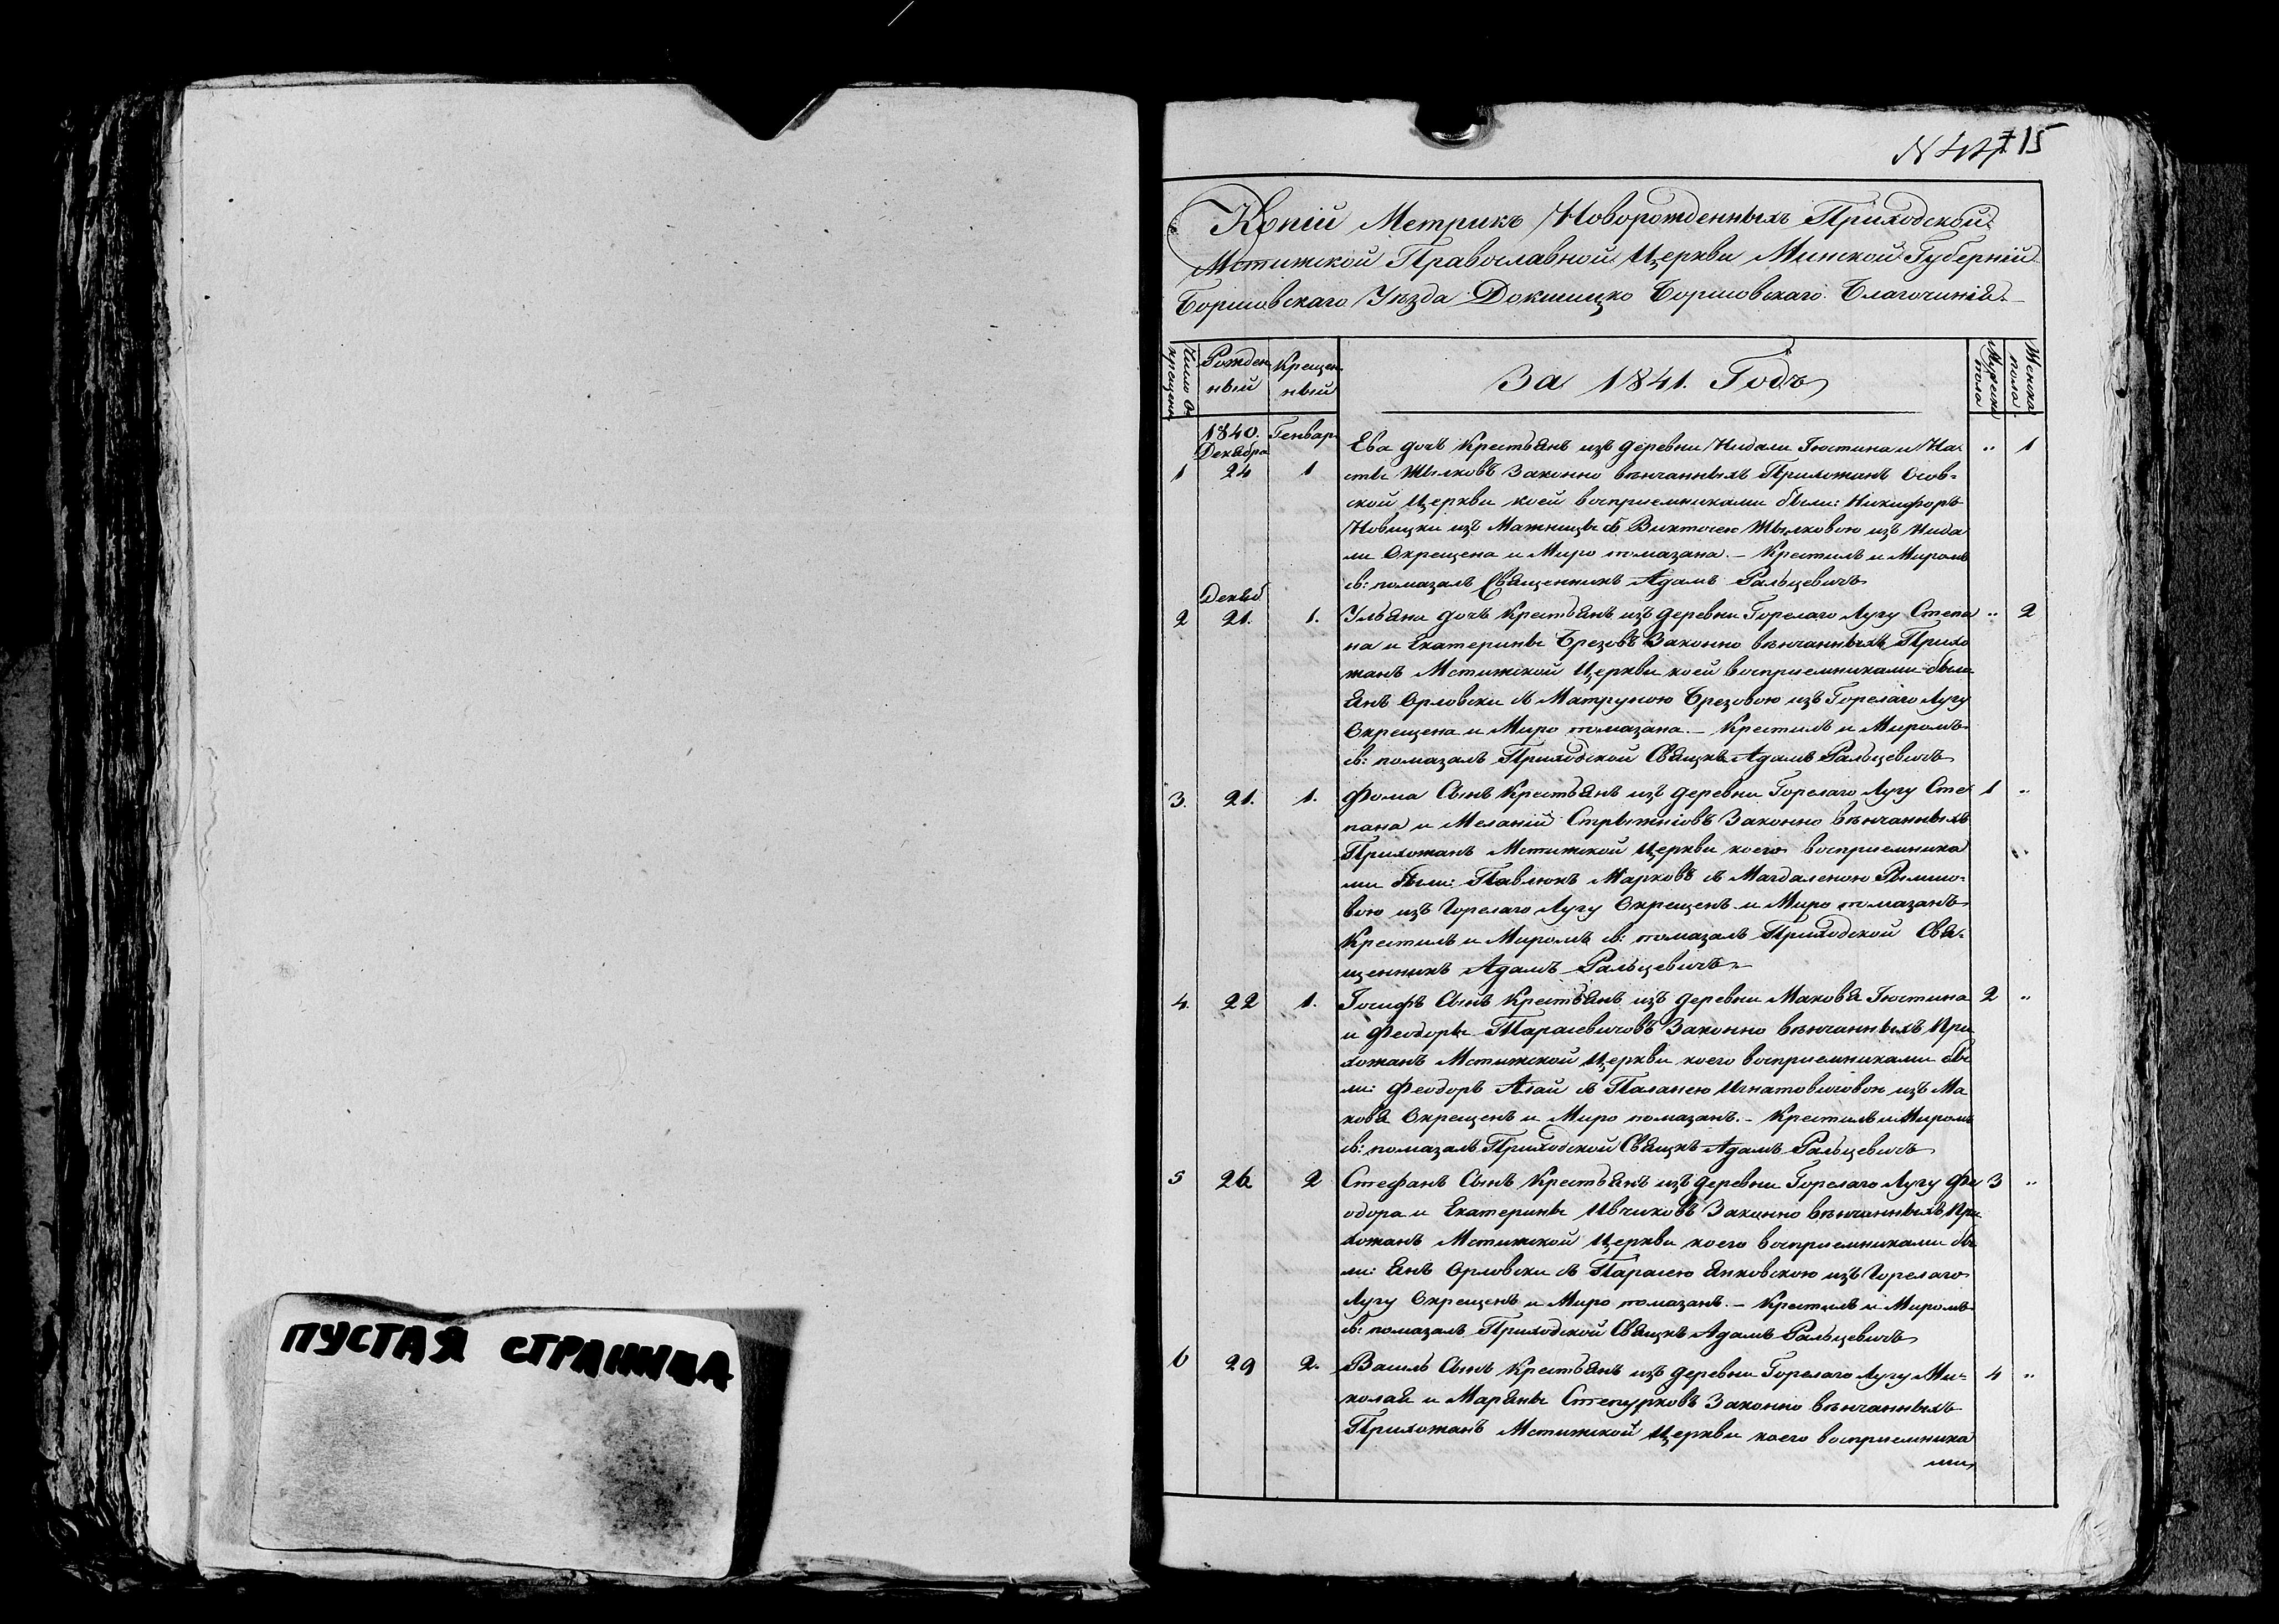 ПУСТАЯ СТРАНИЦА
15
Копій Метрикъ Новорожденныхъ Приходской
Мстижской Православной Церкви Минской Губерній
Борисовскаго Уѣзда Докшицко Борисовскаго Благочинія
Число о-
крещень
Рожден
ный
Крещен
ный
За 1841. Годъ
Мужеска
пола
Женска
пола
1840.
Декабря
Генвар
1 24 1 Ева дочъ Крестьянъ изъ деревни Нидали Іюстина и На- „ 1
сты Шилковъ Законно вѣнчанныхъ Прихожанъ Осов-
ской Церкви коей воспріемниками были: Никифоръ
Новицки изъ Мажницы съ Викточею Шылковою изъ Нида
ли Окрещена и Миро помазана. – Крестилъ и Миромъ
св: помазалъ Священникъ Адамъ Ральцевичъ
Декаб
2 21. 1. Ульяна дочъ Крестьянъ изъ деревни Горелаго Лугу Степа „ 2
на и Екатерины Брезовъ Законно вѣнчанныхъ Прихо
жанъ Мстижской Церкви коей воспріемниками были
Янъ Орловски съ Матруною Брезовою изъ Горелаго Лугу
Окрещена и Миро помазана. – Крестилъ и Миромъ
св: помазалъ Приходской Свящкъ Адамъ Ральцевичъ
3. 21. 1. Фома Сынъ Крестьянъ изъ деревни Горелаго Лугу Сте 1 „
пана и Меланій Стрыжніовъ Законно вѣнчанныхъ
Прихожанъ Мстижской Церкви коего воспріемника
ми были: Павлюкъ Марковъ съ Магдаленою
вою изъ Горелаго Лугу Окрещенъ и Миро помазанъ
Крестилъ и Миромъ св: помазалъ Приходской Свя-
щенникъ Адамъ Ральцевичъ
4. 22 1. Іосифъ Сынъ Крестьянъ изъ деревни Маковя Іюстина 2 „
и Феодоры Тарасевичовъ Законно вѣнчанныхъ При
хожанъ Мстижской Церкви коего воспріемниками бы
ли: Феодоръ Агай съ Паланею Игнатовичовою изъ Ма
ковя Окрещенъ и Миро помазанъ. – Крестилъ и Миромъ
св: помазалъ Приходской Свящкъ Адамъ Ральцевичъ
5 26 2 Стефанъ Сынъ Крестьянъ изъ деревни Горелаго Лугу Фе 3 „
одора и Екатерины Ивчиковъ Законно вѣнчанныхъ При
хожанъ Мстижской Церкви коего воспріемниками бы
ли: Янъ Орловски съ Парасею Янковскою изъ Горелаго
Лугу Окрещенъ и Миро помазанъ. – Крестилъ и Миромъ
св: помазалъ Приходской Свящкъ Адамъ Ральцевичъ
6 29 2. Василь Сынъ Крестьянъ изъ деревни Горелаго Лугу Ми- 4 „
колая и Марьяны Степурковъ Законно вѣнчанныхъ
Прихожанъ Мстижской Церкви коего воспріемника
ми,